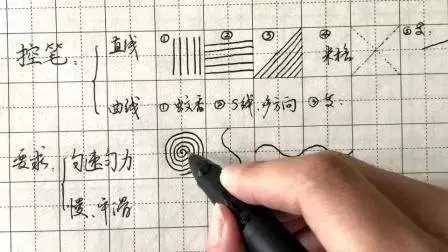 控笔： 直线 ① ② ③ ④ 米格 ⑤
曲线 ① 蚊香 ② S线,多方向 ③
要求： 匀速匀力
慢、平滑